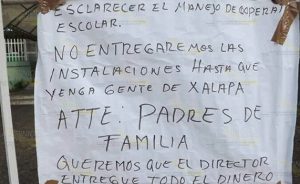 ESCLARECER EL MANEJO DE COOPERA
ESCOLAR.
NO ENTREGAREMOS LAS
INSTALACIONES HASTA QUE
VENGA GENTE DE XALAPA
ATTE: PADRES DE
FAMILIA
QUEREMOS QUE EL DIRECTOR
ENTREGUE TODO EL DINERO